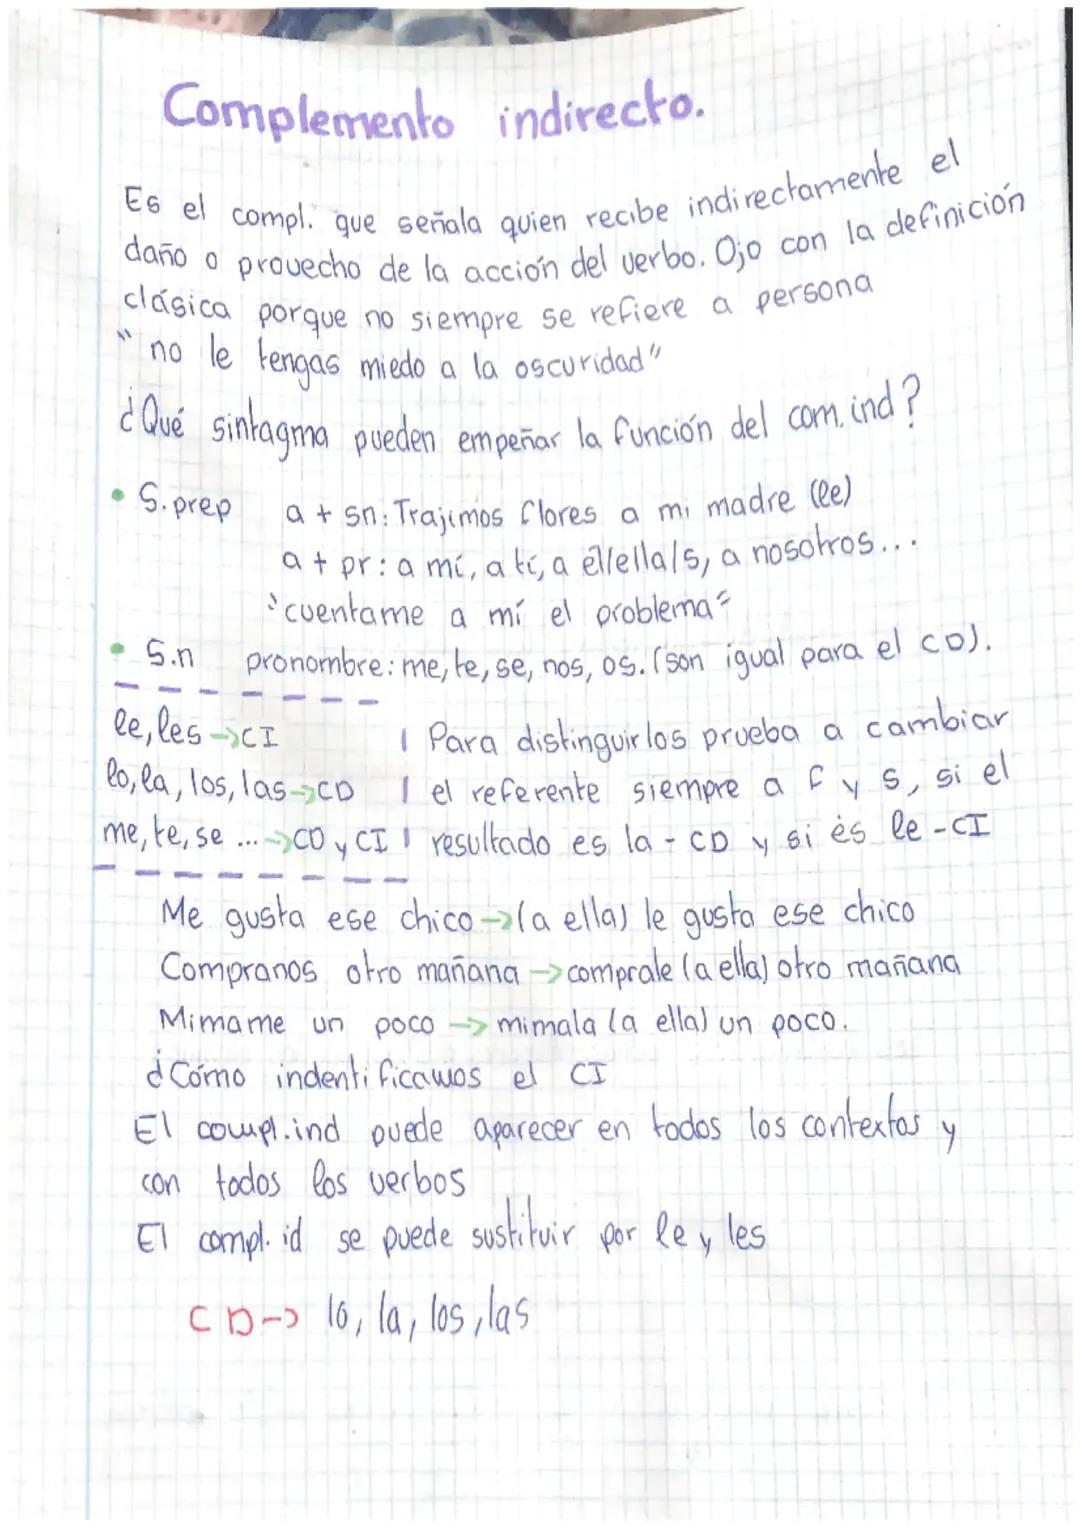 Complemento indirecto.
Es el compl. que señala quien recibe indirectamente el
daño o provecho de la acción del verbo. Ojo con la definición
clásica porque no siempre se refiere a persona
"no le tengas miedo a la oscuridad"
¿Qué sintagma pueden empeñar la función del com. ind?
• S.prep a + sn: Trajimos flores a mi madre (le)
a + pr: a mí, a tí, a él/ella/s, a nosotros...
"cuentame a mí el problema"
• S.n pronombre: me, te, se, nos, os. (son igual para el CD).
le, les → CI | Para distinguirlos prueba a cambiar
lo, la, los, las → CD | el referente siempre a f y s, si el
me, te, se ... → CD y CI | resultado es la - CD y si és le - CI
Me gusta ese chico → (a ella) le gusta ese chico
Compranos otro mañana → comprale (a ella) otro mañana
Mimame un poco → mimala (a ella) un poco.
¿Cómo indentificamos el CI
El compl.ind puede aparecer en todos los contextos y
con todos los verbos
El compl. id se puede sustituir por le y les
CD → lo, la, los, las